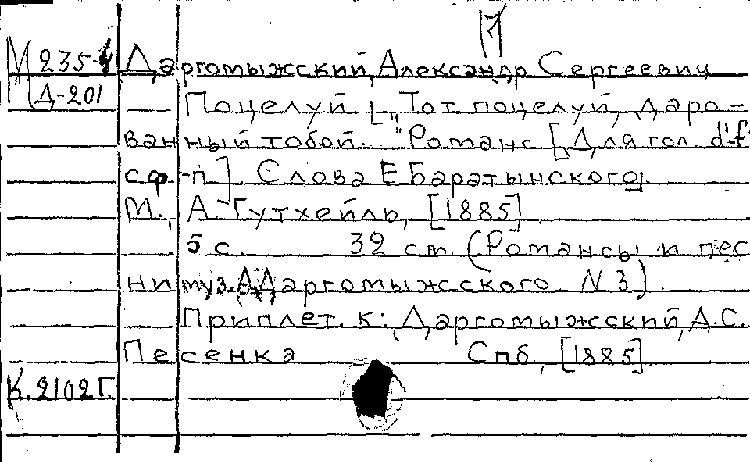 М 235-4 Даргомыжский, Александр Сергеевич
Д-201 Поцелуй [„Тот поцелуй, даро-
ванный тобой.." Романс [Для гол. d'-f
с ф.-п]. Слова Е Баратынского].
М., А. Гутхейль, [1885]
5 с. 32 см (Романсы и пес
ни муз. А Даргомыжского N 3).
Приплет. к: Даргомыжский, А.С.
Песенка Спб., [1885]
К. 2102 Г.